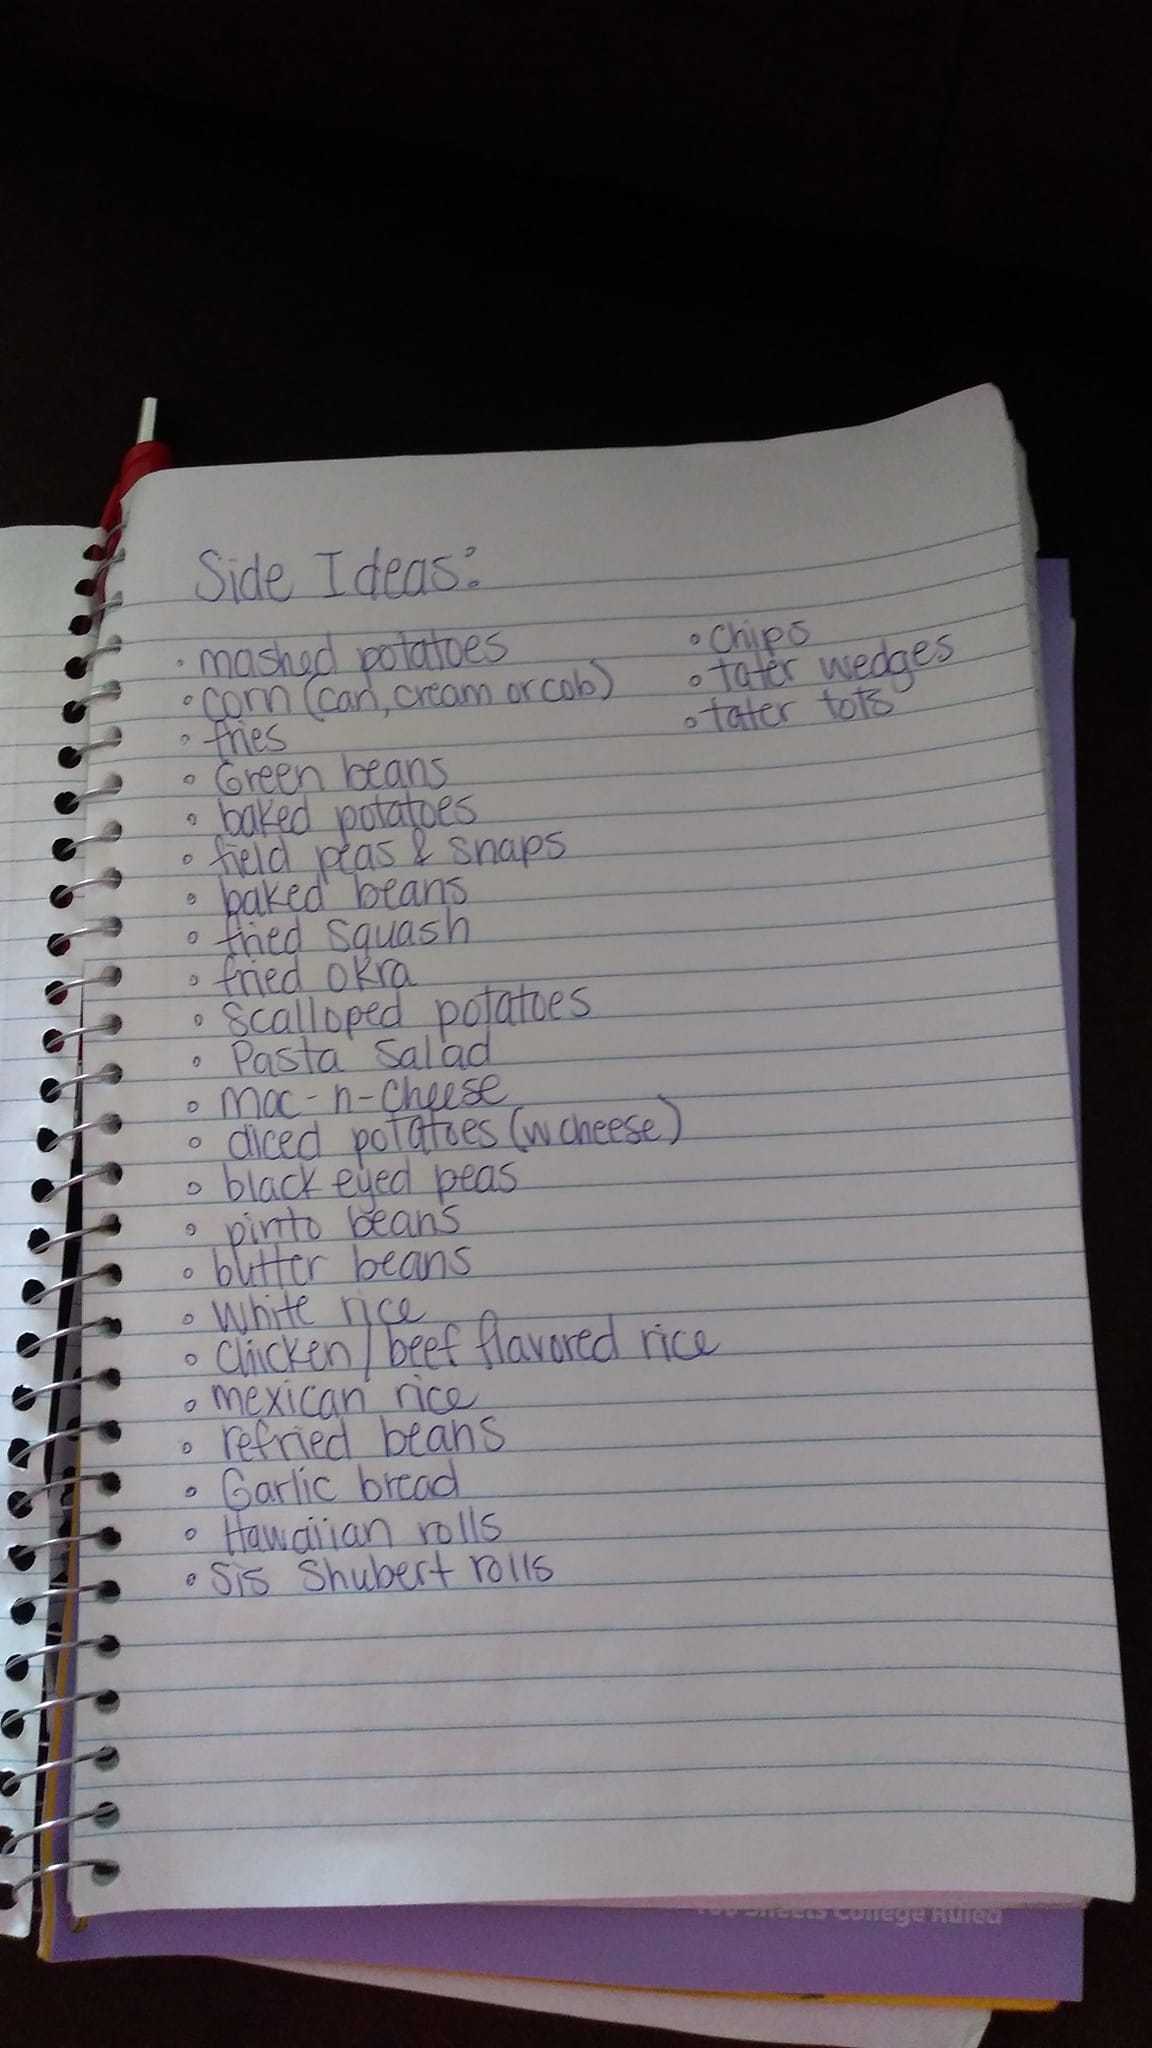 Side Ideas:
• mashed potatoes
• corn (can, cream or cob)
• fries
• Green beans
• baked potatoes
• field peas & snaps
• baked beans
• fried squash
• fried okra
• Scalloped potatoes
• Pasta Salad
• Mac-n-Cheese
• diced potatoes (w cheese)
• black eyed peas
• pinto beans
• butter beans
• White rice
• Chicken / beef flavored rice
• mexican rice
• refried beans
• Garlic bread
• Hawaiian rolls
• Sis Shubert rolls
• Chips
• tater wedges
• tater tots
Sheets College Ruled